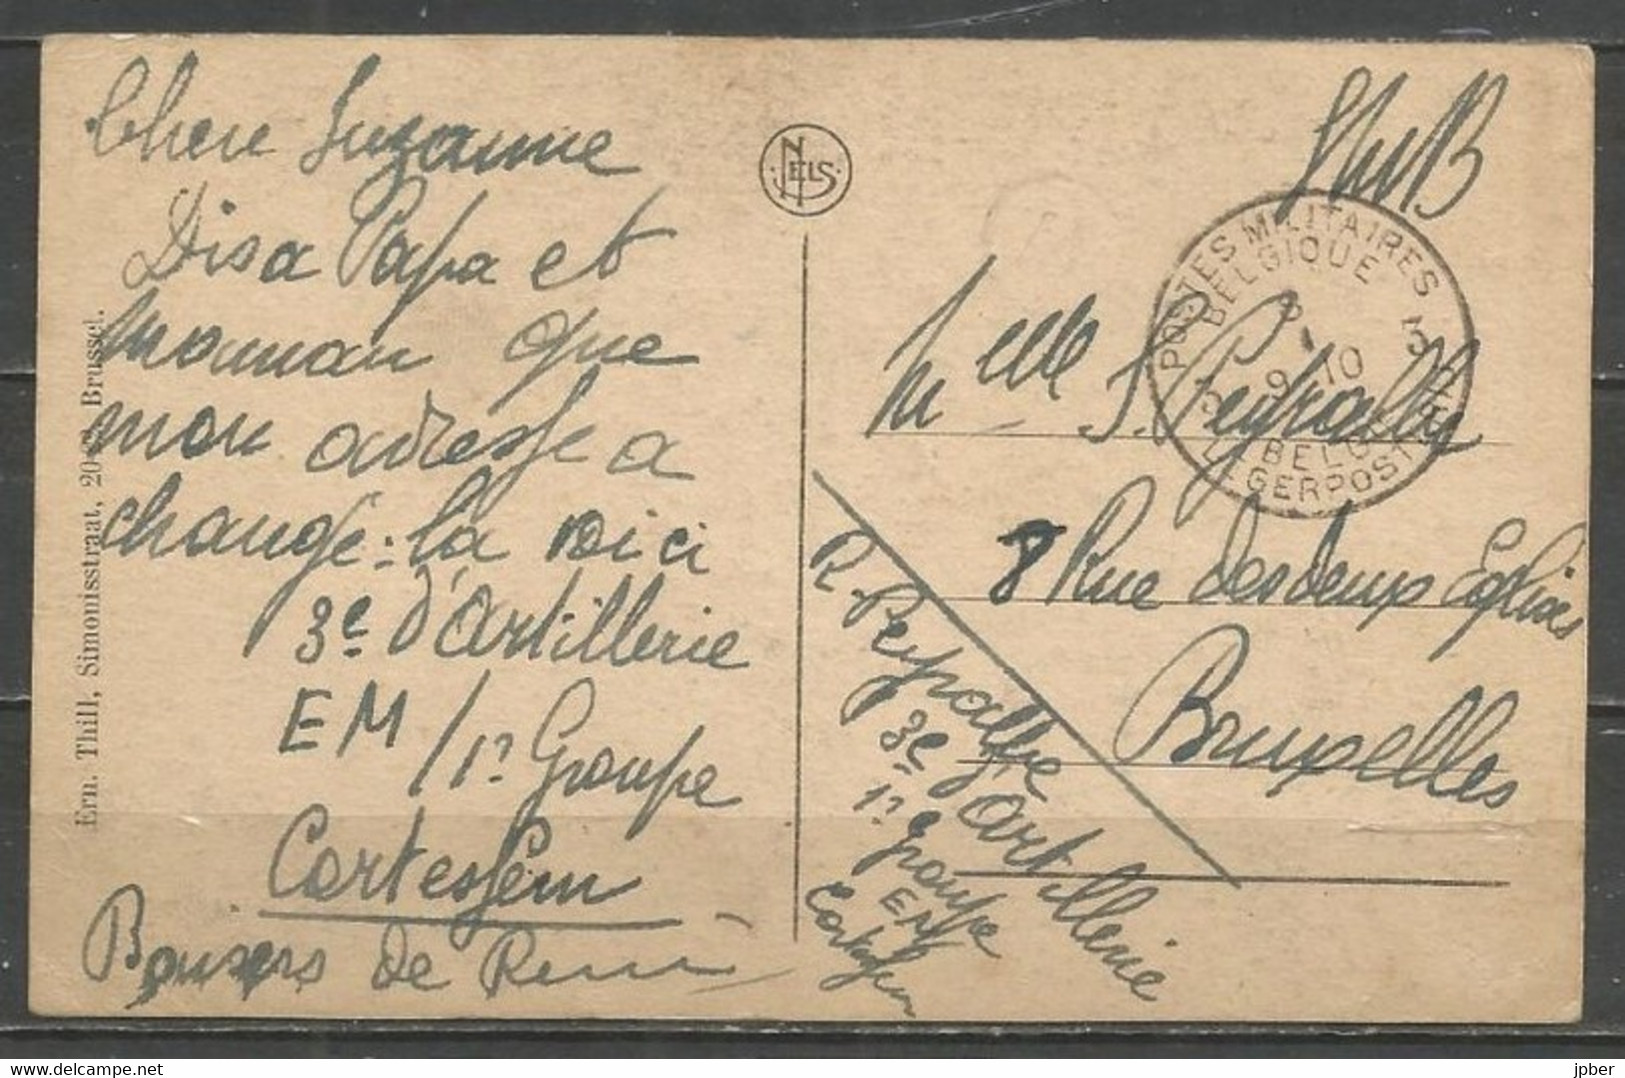 Chere Suzanne
Dis a Papa et
Maman que
mon adresse a
changé : la voici
3e d'Artillerie
EM / 1r Groupe
Cortessem
Bonsers de René
Ern. Thill, Simonisstraat, 20 Brussel.
NELS
SMB
POSTES MILITAIRES
BELGIQUE
3 3
9 10
BELGIE
LEGERPOSTERIJ
Melle S. Peyralbe
8 Rue des deux Eglises
Bruxelles
R. Peyralbe
3e Artillerie
1r Groupe
EM
Cortessem
jpber